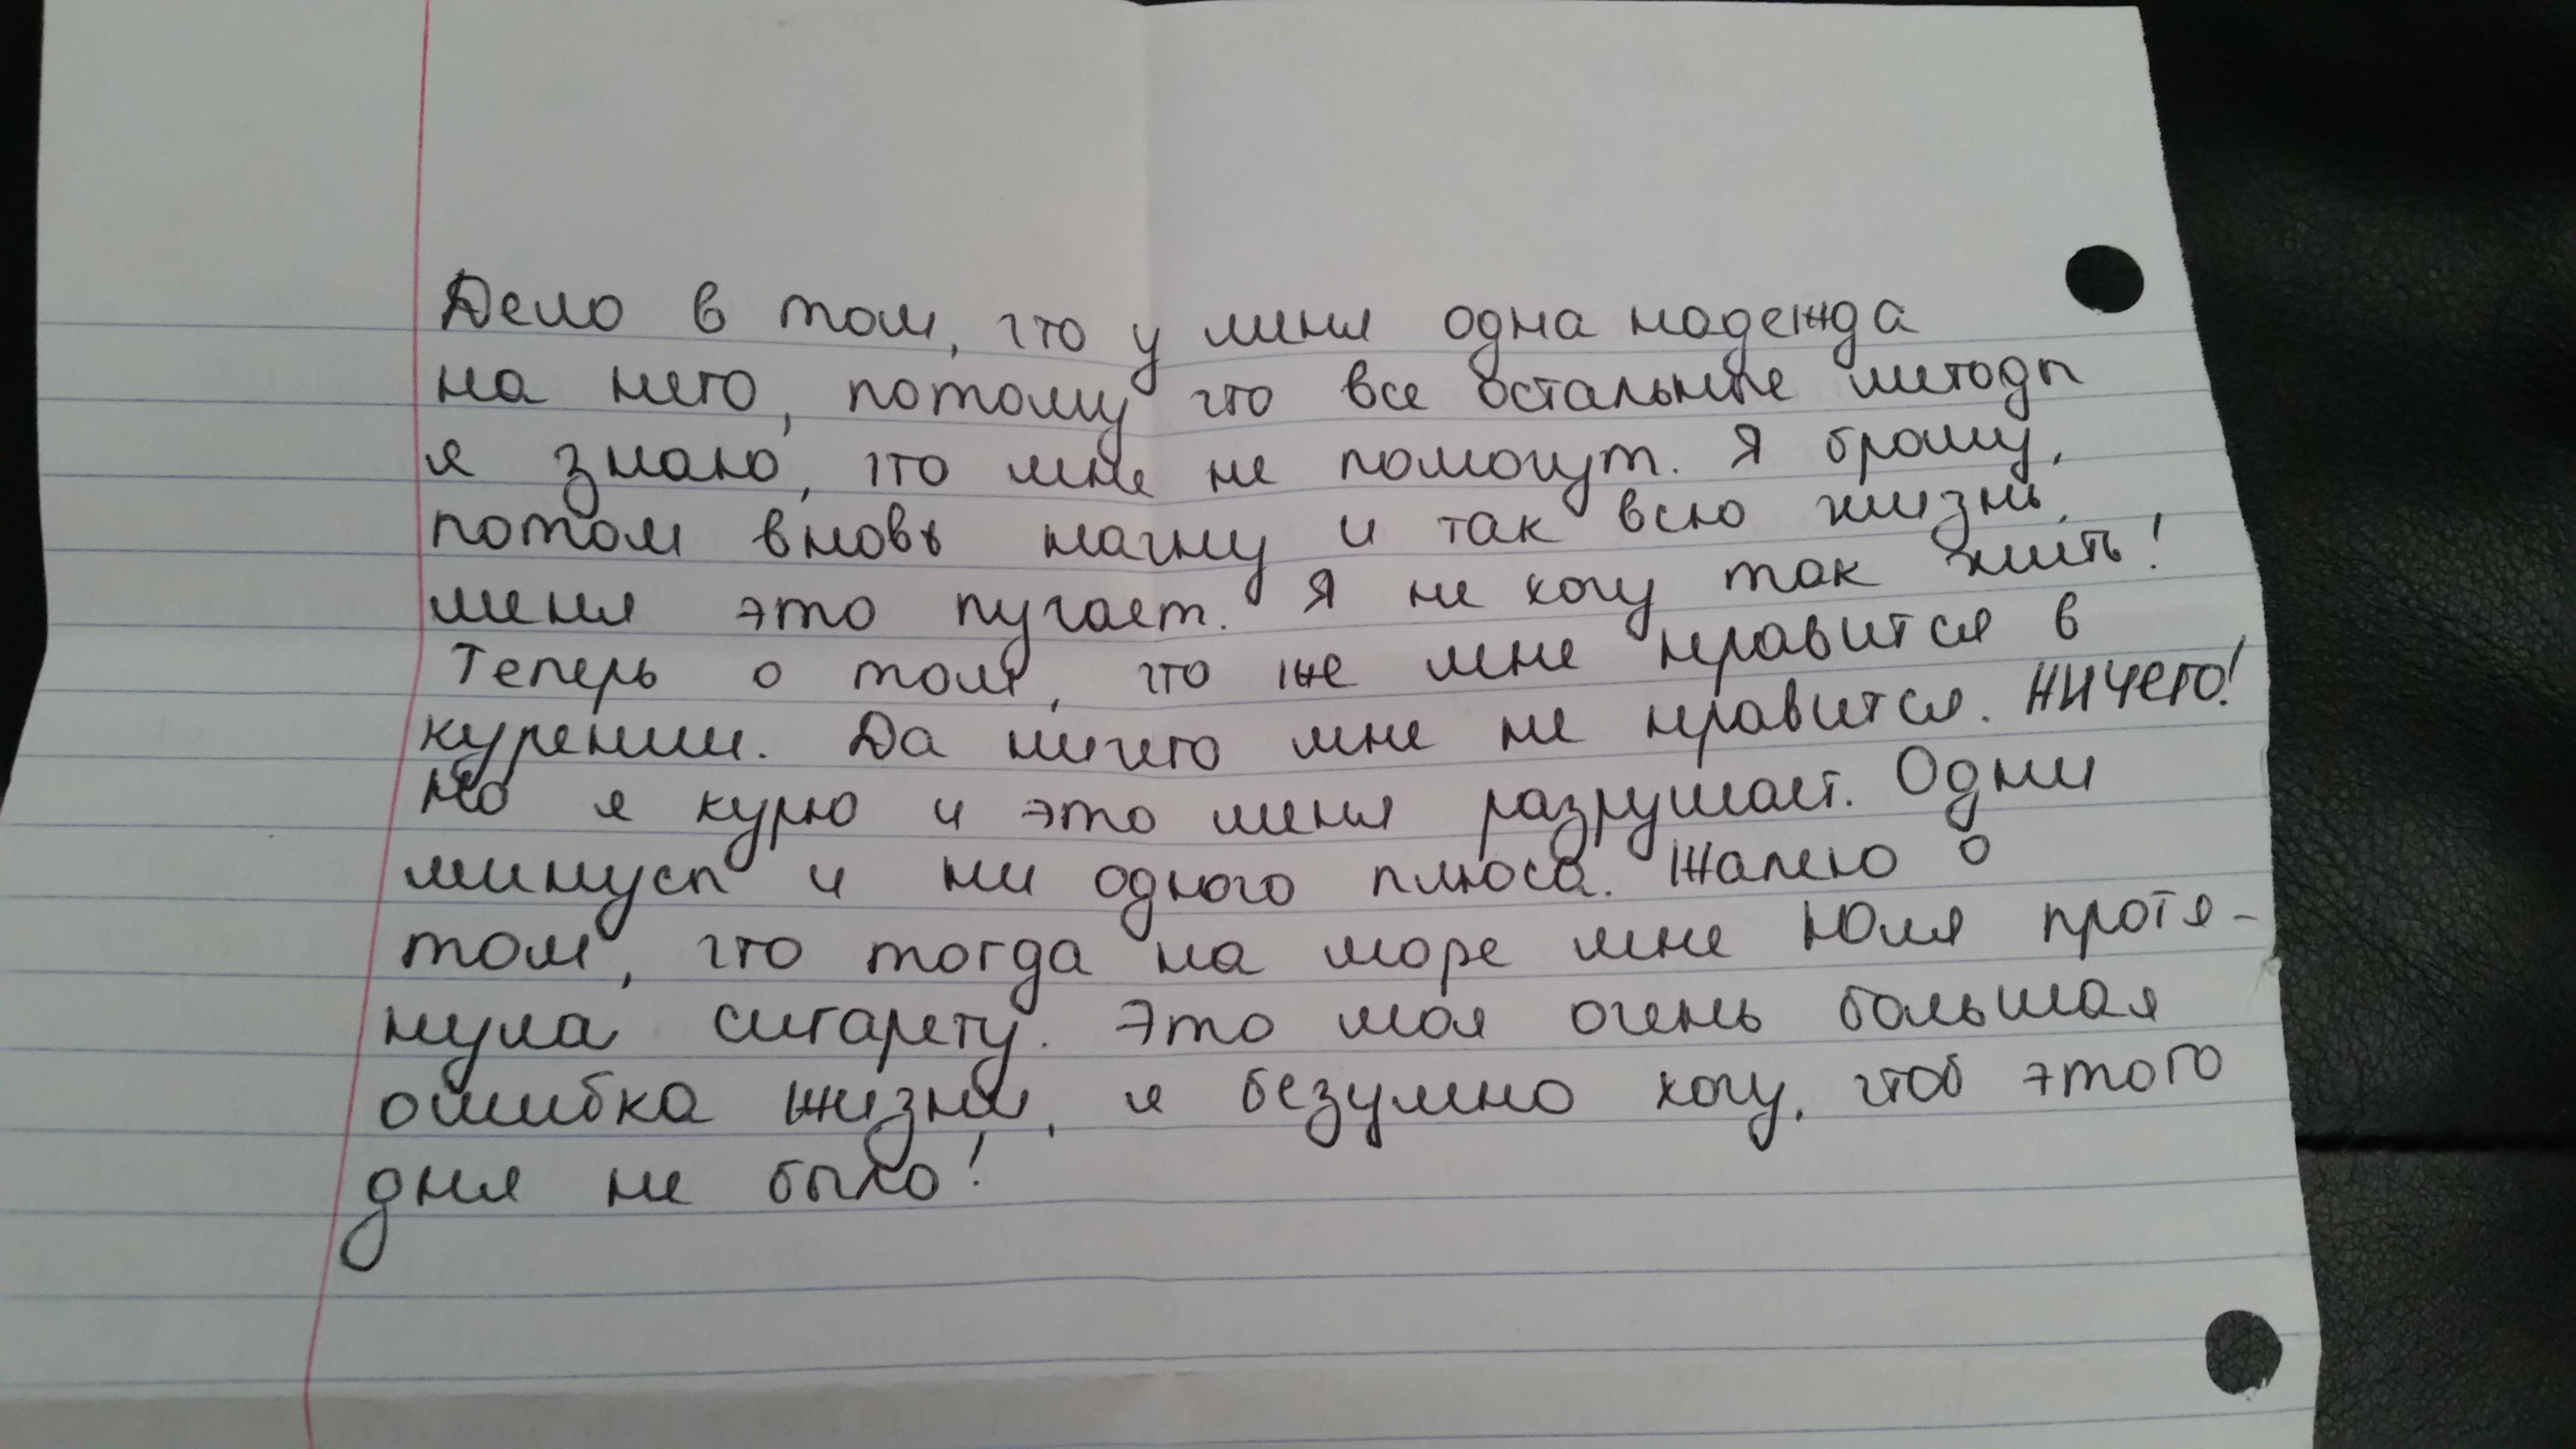 Дело в том, что у меня одна надежда
на него, потому что все остальные методы
я знаю, что мне не помогут. Я брошу,
потом вновь начну и так всю жизнь,
меня это пугает. Я не хочу так жить!
Теперь о том, что же мне нравится в
курении. Да ничего мне не нравится. НИЧЕГО!
Но я курю и это меня разрушает. Одни
минусы и ни одного плюса. Жалею о
том, что тогда на море мне Юля протя-
нула сигарету. Это моя очень большая
ошибка жизни, я безумно хочу, чтоб этого
дня не было!